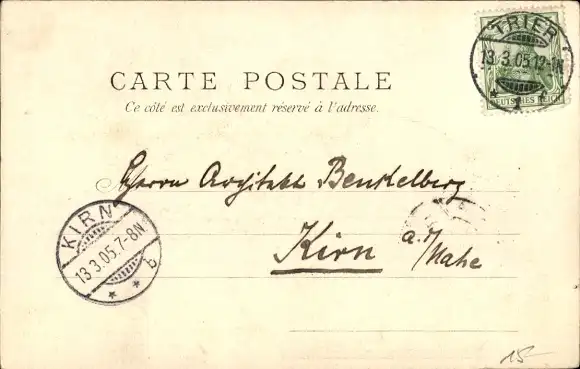 TRIER
13.3.05.12-1N
DEUTSCHES REICH
CARTE POSTALE
Ce côté est exclusivement réservé à l'adresse.
Herrn Architekt Benkelberg
Kirn a. d/ Nahe
KIRN
13.3.05.7-8N
b
15-